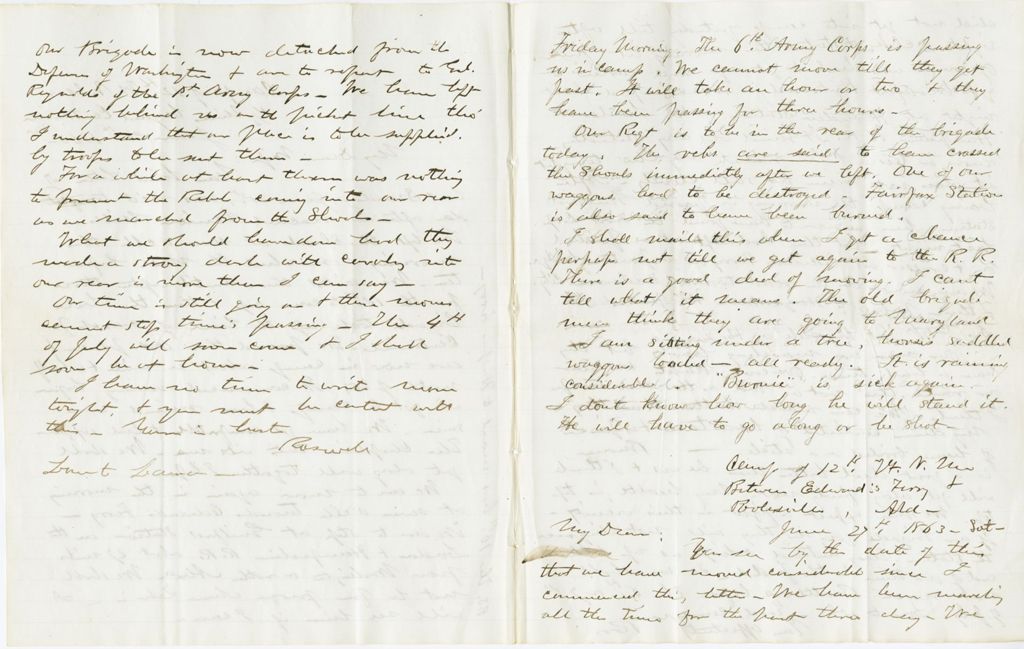 Our Brigade is now detached from the
Defences of Washington & are to report to Genl.
Reynolds of the 1st. Army Corps - We have left
nothing behind us on the picket line tho'
I understand that our place is to be supplied.
by troops to be sent there -
For a while at least there was nothing
to prevent the Rebels coming into our rear
as we marched from the Shoals -
What we should have done had they
made a strong dash with cavalry into
our rear is more than I can say -
Our time is still going on & these moves
cannot stop time's passing - The 4th
of July will soon come & I shall
soon be at home -
I have no time to write more
tonight, & you must be content with
this - Yours in haste
Roswell
Friday Morning. The 6th. Army Corps is passing
us in camp. We cannot move till they get
past. It will take an hour or two & they
have been passing for three hours -
Our Regt is to be in the rear of the brigade
today. The rebs are said to have crossed
the Shoals immediately after we left. One of our
waggons had to be destroyed - Fairfax Station
is also said to have been burned.
I shall mail this when I get a chance
perhaps not till we get again to the R.R.
There is a good deal of moving. I can't
tell what it means. The old brigade
men think they are going to Maryland
I am sitting under a tree, horses saddled
waggons loaded - all ready. It is raining
considerable. "Brownie" is sick again.
I dont know how long he will stand it.
He will have to go along or be shot -
Camp of 12th. Vt. V. M.
Between Edward's Ferry &
Poolesville, Md -
June 27th 1863 - Sat -
My Dear:
You see by the date of this
that we have moved considerable since I
commenced this letter - We have been marching
all the time for the past three days - We